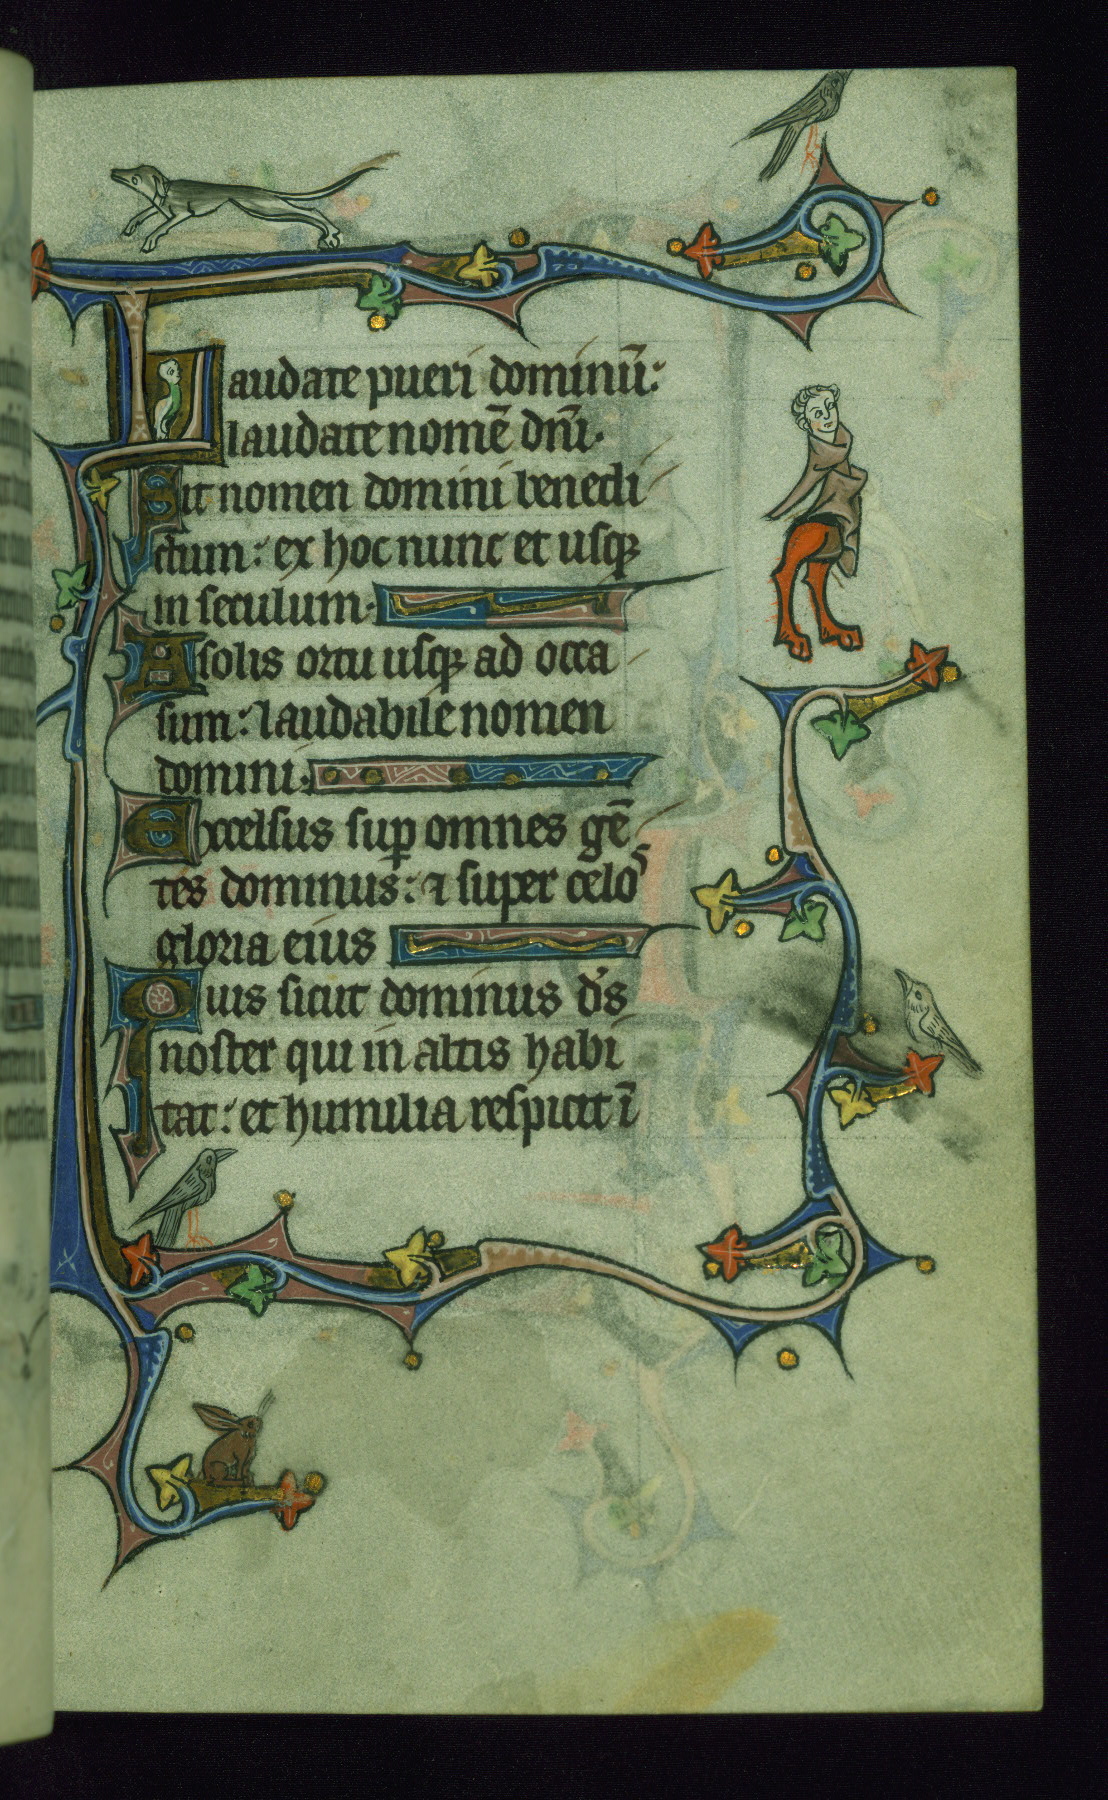 Laudate pueri dominū:
laudate nomē dñi.
Sit nomen domini benedi
ctum: ex hoc nunc et usq̨
in seculum.
A solis ortu usq̨ ad occa
sum: laudabile nomen
domini.
Excelsus sup̱ omnes gē
tes dominus: ⁊ super celos
gloria eius
Quis sicut dominus d̄s
noster qui in altis habi
tat: et humilia respicit ī